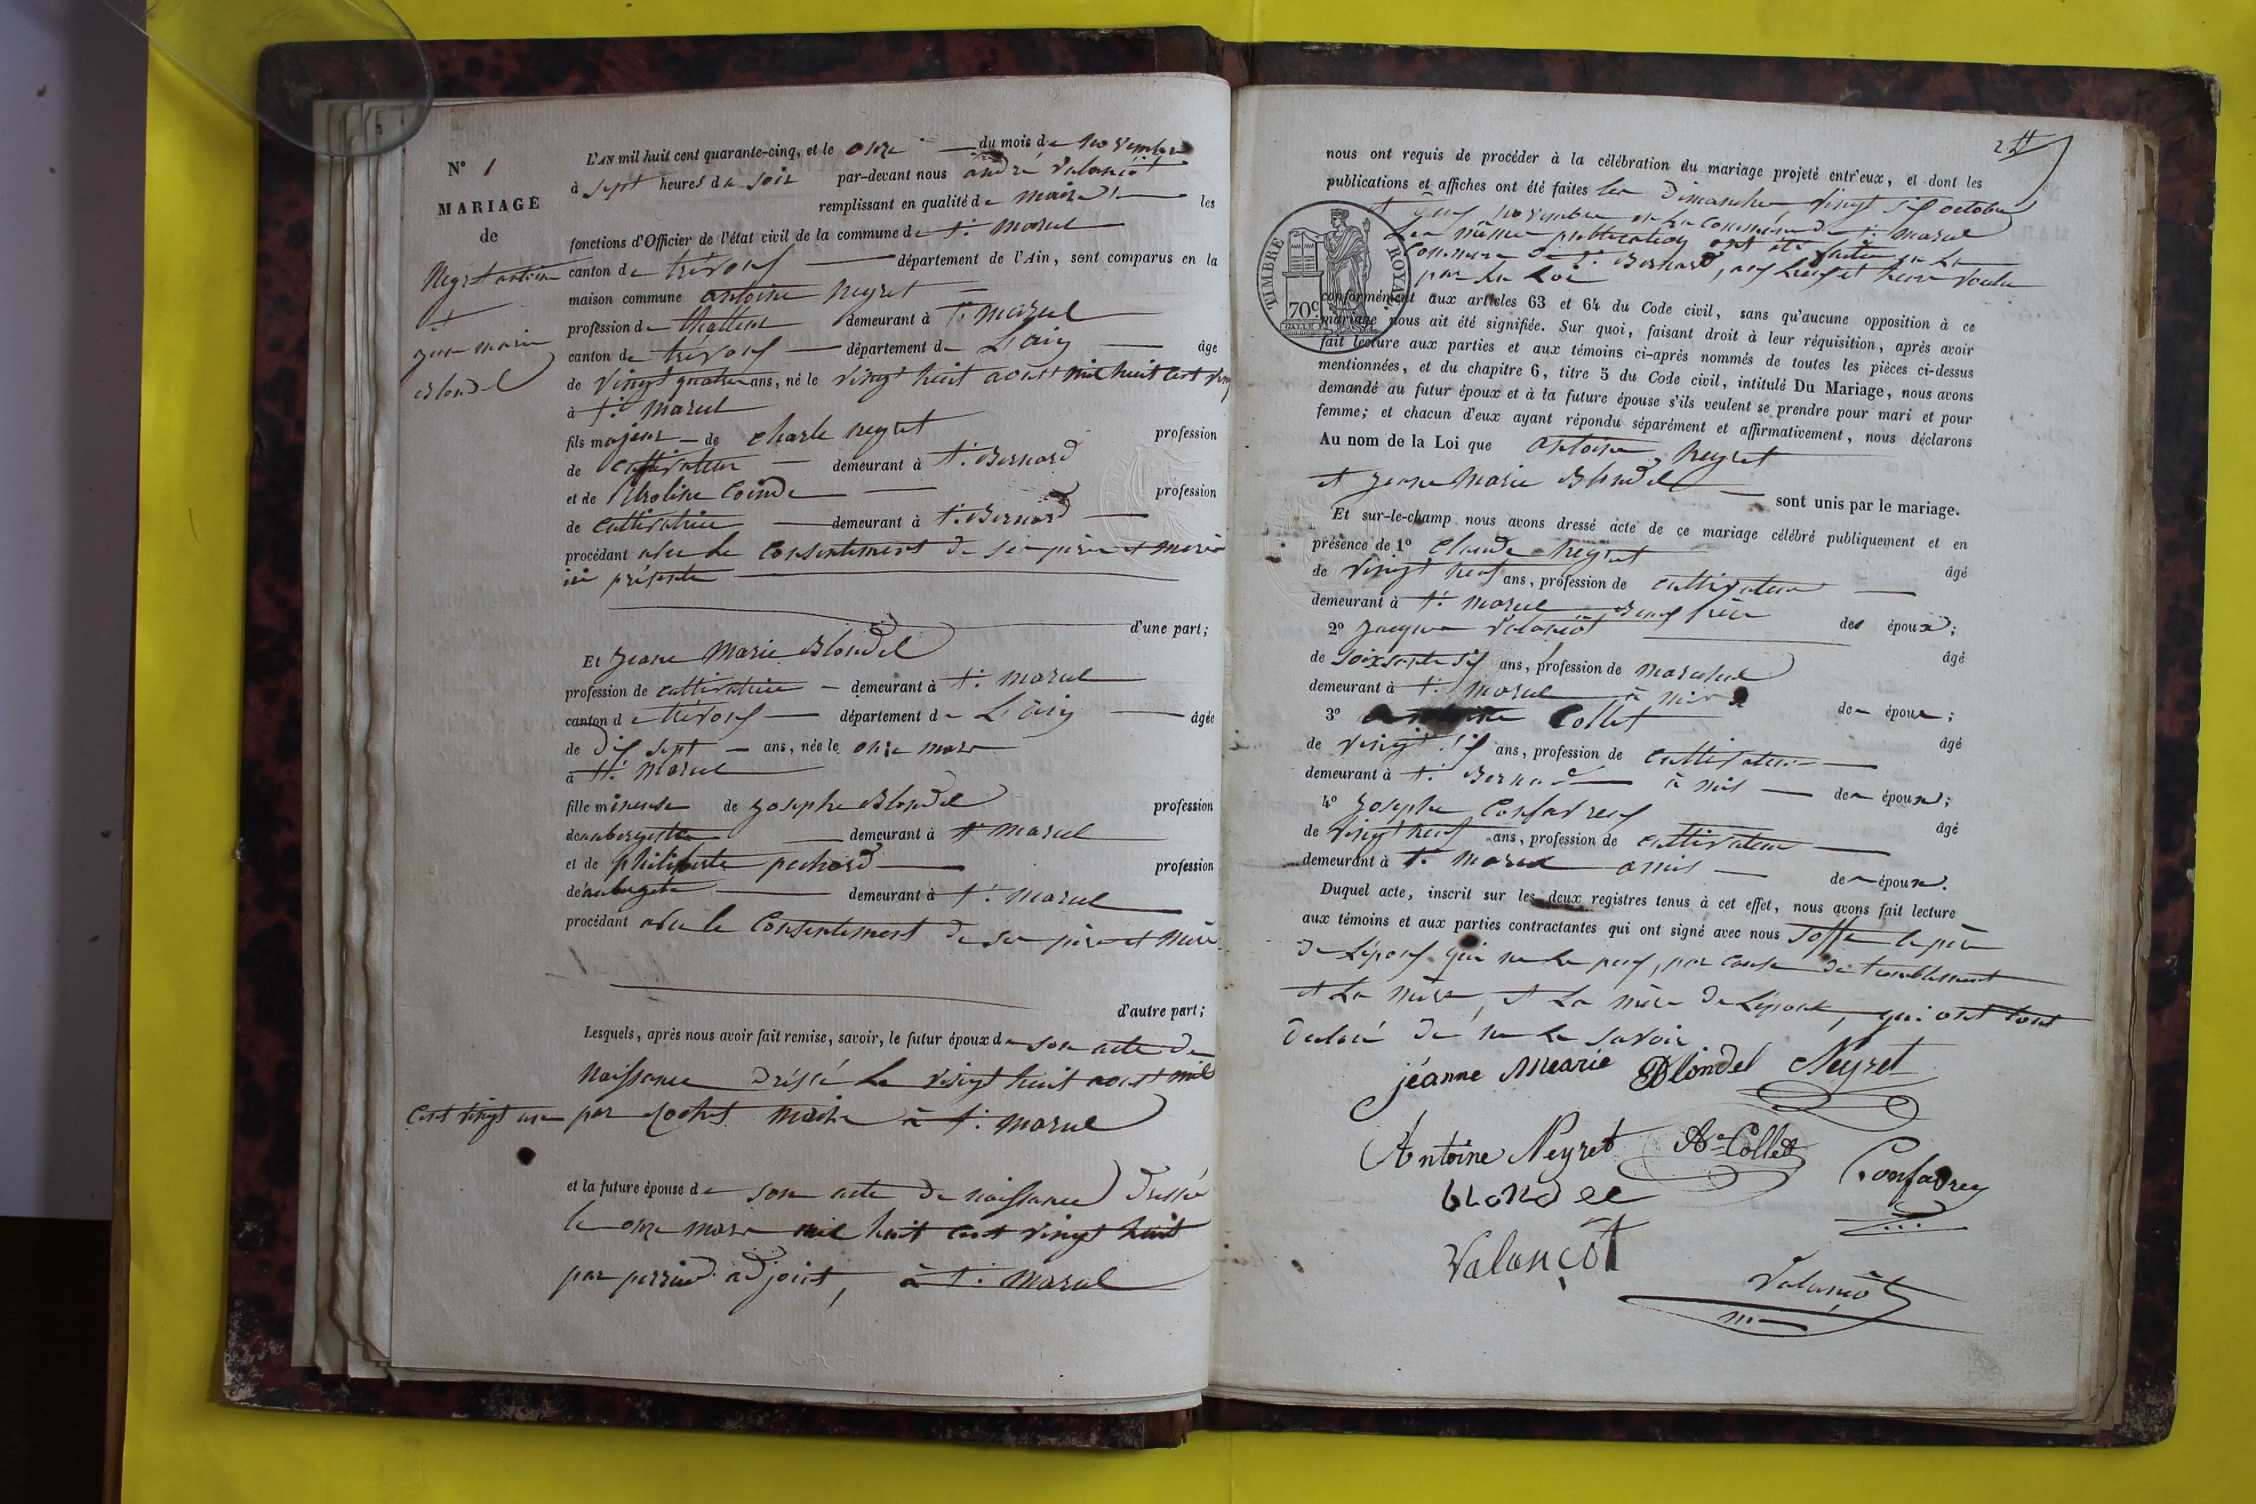 N° 1
MARIAGE
de
Neyret antoine
et
jeane marie
Blondel
L'AN mil huit cent quarante-cinq, et le onze du mois de novembre
à sept heures de soir par-devant nous andré Valançôt
remplissant en qualité de maire les
fonctions d'Officier de l'état civil de la commune de st. marcel
canton de trévoux département de l'Ain, sont comparus en la
maison commune antoine neyret
profession de demeurant à st marcel
canton de trévoux département de L'ain âgé
de vingt quatre ans, né le vingt huit aoust mil huit cent vingt
à st. marcel
fils majeur de charle neyret profession
de cultivateur demeurant à st. Bernard
et de Coinde profession
de cultivatrice demeurant à st. Bernard
procédant avec le consentement de ses père et mère
ici présente
d'une part;
Et Jeane Marie Blondel
profession de cultivatrice demeurant à st. marcel
canton de trévoux département de L'ain âgée
de dix sept ans, née le onze mars
à st. marcel
fille mineuse de josephe Blondel profession
de aubergiste demeurant à st marcel
et de philiberte pechard profession
de aubergiste demeurant à st. marcel
procédant avec le consentement de ses père et mère
d'autre part;
Lesquels, après nous avoir fait remise, savoir, le futur époux de son acte de
naissance dréssé le vingt huit aoust mil
cent vingt un par maire à st. marcel
et la future épouse de son acte de naissance dressée
le onze mars mil huit cent vingt huit
par adjoint, à st. marcel
nous ont requis de procéder à la célébration du mariage projeté entr'eux, et dont les
publications et affiches ont été faites les Dimanche vingt six octobre
et novembre en la commune de st. marcel
les même publication ont été faites en la
commune de st. Bernard, aux lieux et heure voulu
par la Loi
TIMBRE ROYAL
70c
conformément aux articles 63 et 64 du Code civil, sans qu'aucune opposition à ce
mariage nous ait été signifiée. Sur quoi, faisant droit à leur réquisition, après avoir
fait lecture aux parties et aux témoins ci-après nommés de toutes les pièces ci-dessus
mentionnées, et du chapitre 6, titre 5 du Code civil, intitulé Du Mariage, nous avons
demandé au futur époux et à la future épouse s'ils veulent se prendre pour mari et pour
femme; et chacun d'eux ayant répondu séparément et affirmativement, nous déclarons
Au nom de la Loi que antoine neyret
et Jeane Marie Blondel sont unis par le mariage.
Et sur-le-champ nous avons dressé acte de ce mariage célébré publiquement et en
présence de 1° claude neyret âgé
de vingt neuf ans, profession de cultivateur
demeurant à st. marcel Beau frère des époux;
2° Jacque Valançôt âgé
de soixsante six ans, profession de marechal
demeurant à st. marcel à mis de époux;
3° Collet âgé
de vingt six ans, profession de cultivateur
demeurant à st. Bernard à mis de époux;
4° Josephe Confavreux âgé
de vingt neuf ans, profession de cultivateur
demeurant à st. marcel amis de époux.
Duquel acte, inscrit sur les deux registres tenus à cet effet, nous avons fait lecture
aux témoins et aux parties contractantes qui ont signé avec nous soffe le père
de L'époux qui ne le peux, par cause de tremblement
et La mère, et La mère de L'épouse, qui ont tous
declaré de ne le savoir
jéanne Mearie Blondel Neyret
Antoine Neyret Ae Collet
Confavreux
blondel
Valançôt
Valançôt
m